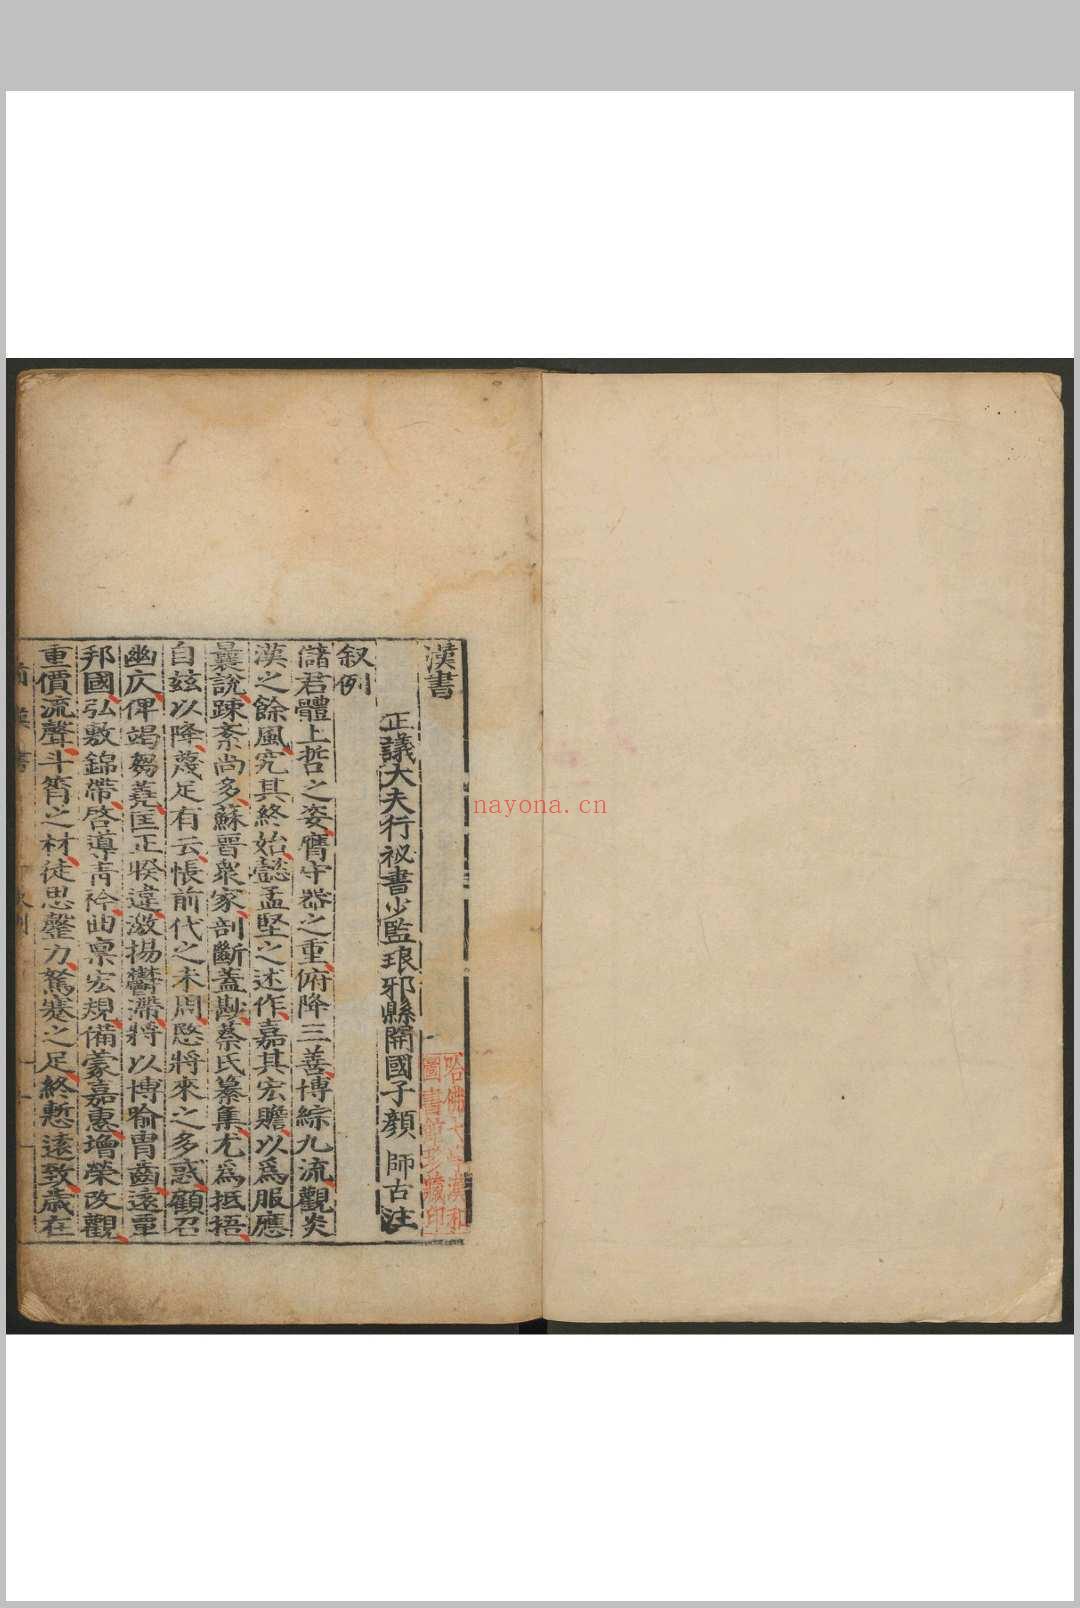 漢書
正議大夫行祕書少監琅邪縣開國子顏師古注
叙例
儲君體上哲之姿膺守器之重俯降三善博綜九流觀炎
漢之餘風究其終始懿孟堅之述作嘉其宏贍以爲服應
曩說踈紊尚多蘇晉衆家剖斷蓋尠蔡氏纂集尤爲抵捂
自茲以降蔑足有云悵前代之未周愍將來之多惑顧召
幽仄俾竭芻蕘匡正睽違激揚鬱滯將以博喻胄齒遠覃
邦國弘敷錦帶啓導青衿曲稟宏規備蒙嘉惠增榮改觀
重價流聲斗筲之材徒思罄力駑蹇之足終慙遠致歲在
哈佛大學漢和
圖書館珍藏印
nayona.cn